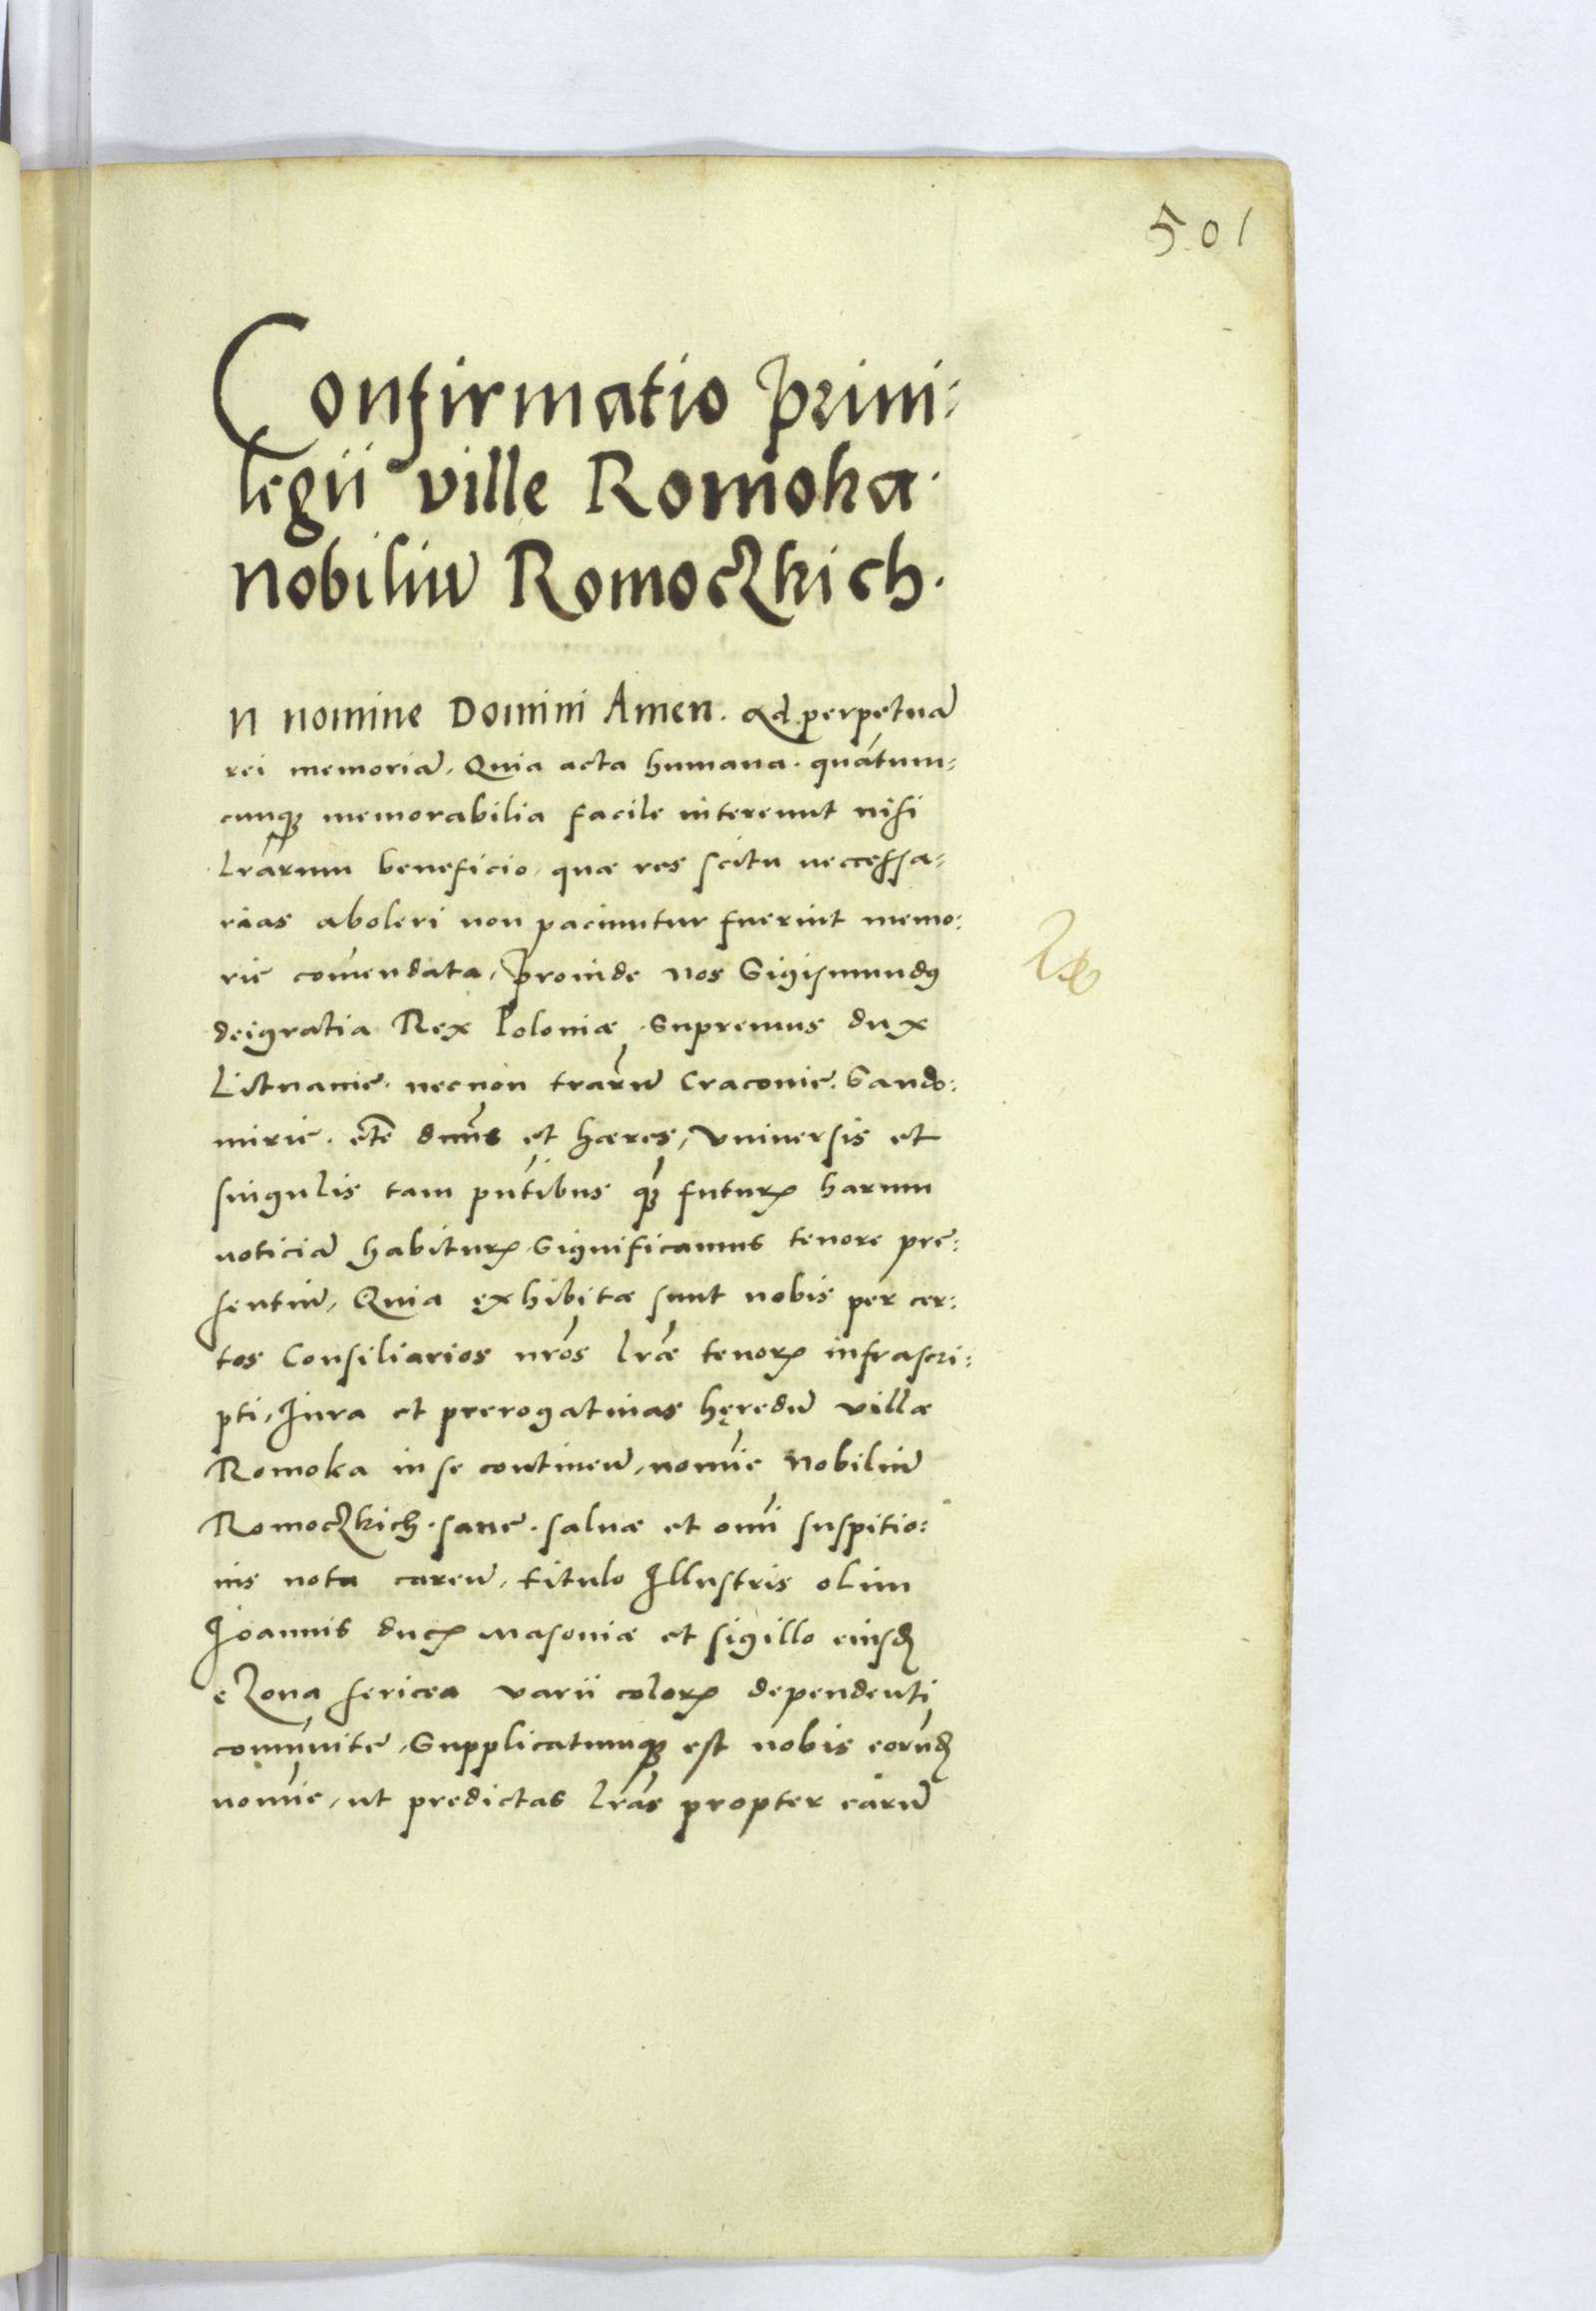 501
Confirmatio priui-
legii ville Romoka.
nobiliū Romoczkich.
N nomine Domini Amen. Ad perpetuā
rei memoriā, Quia acta humana. quātum-
cunqȝ memorabilia facile intereunt nisi
lrārum beneficio, quæ res scitu neccessa-
rias aboleri non paciuntur fuerint memo:
rie comendata, proinde nos Sigismundꝯ
deigratia Rex Poloniæ. Supremus dux
Lictuanie. necnon trarū Cracouie. Sando:
mirie. etc̄ dnūs et hæres, Vniuersis et
singulis tam pn̄tibus qȝ futurꝭ harum
noticiā habiturꝭ. Significamus tenore pre:
sentiū, Quia exhibitæ sunt nobis per cer:
tos Consiliarios nrōs lrǣ tenorꝭ infrascri:
pti, Jura et prerogatiuas hęredū villæ
Romoka in se continen̄, nomīe Nobiliū
Romoczkich. sane. saluæ et omī suspitio:
nis nota caren̄, titulo Jllustris olim
Joannis ducꝭ Masouiæ et sigillo eiusdē
e Zona sericea varii colorꝭ dependenti
comūnite, Supplicatumqȝ est nobis eorūdē
nomīe, ut predictas lrās propter earū